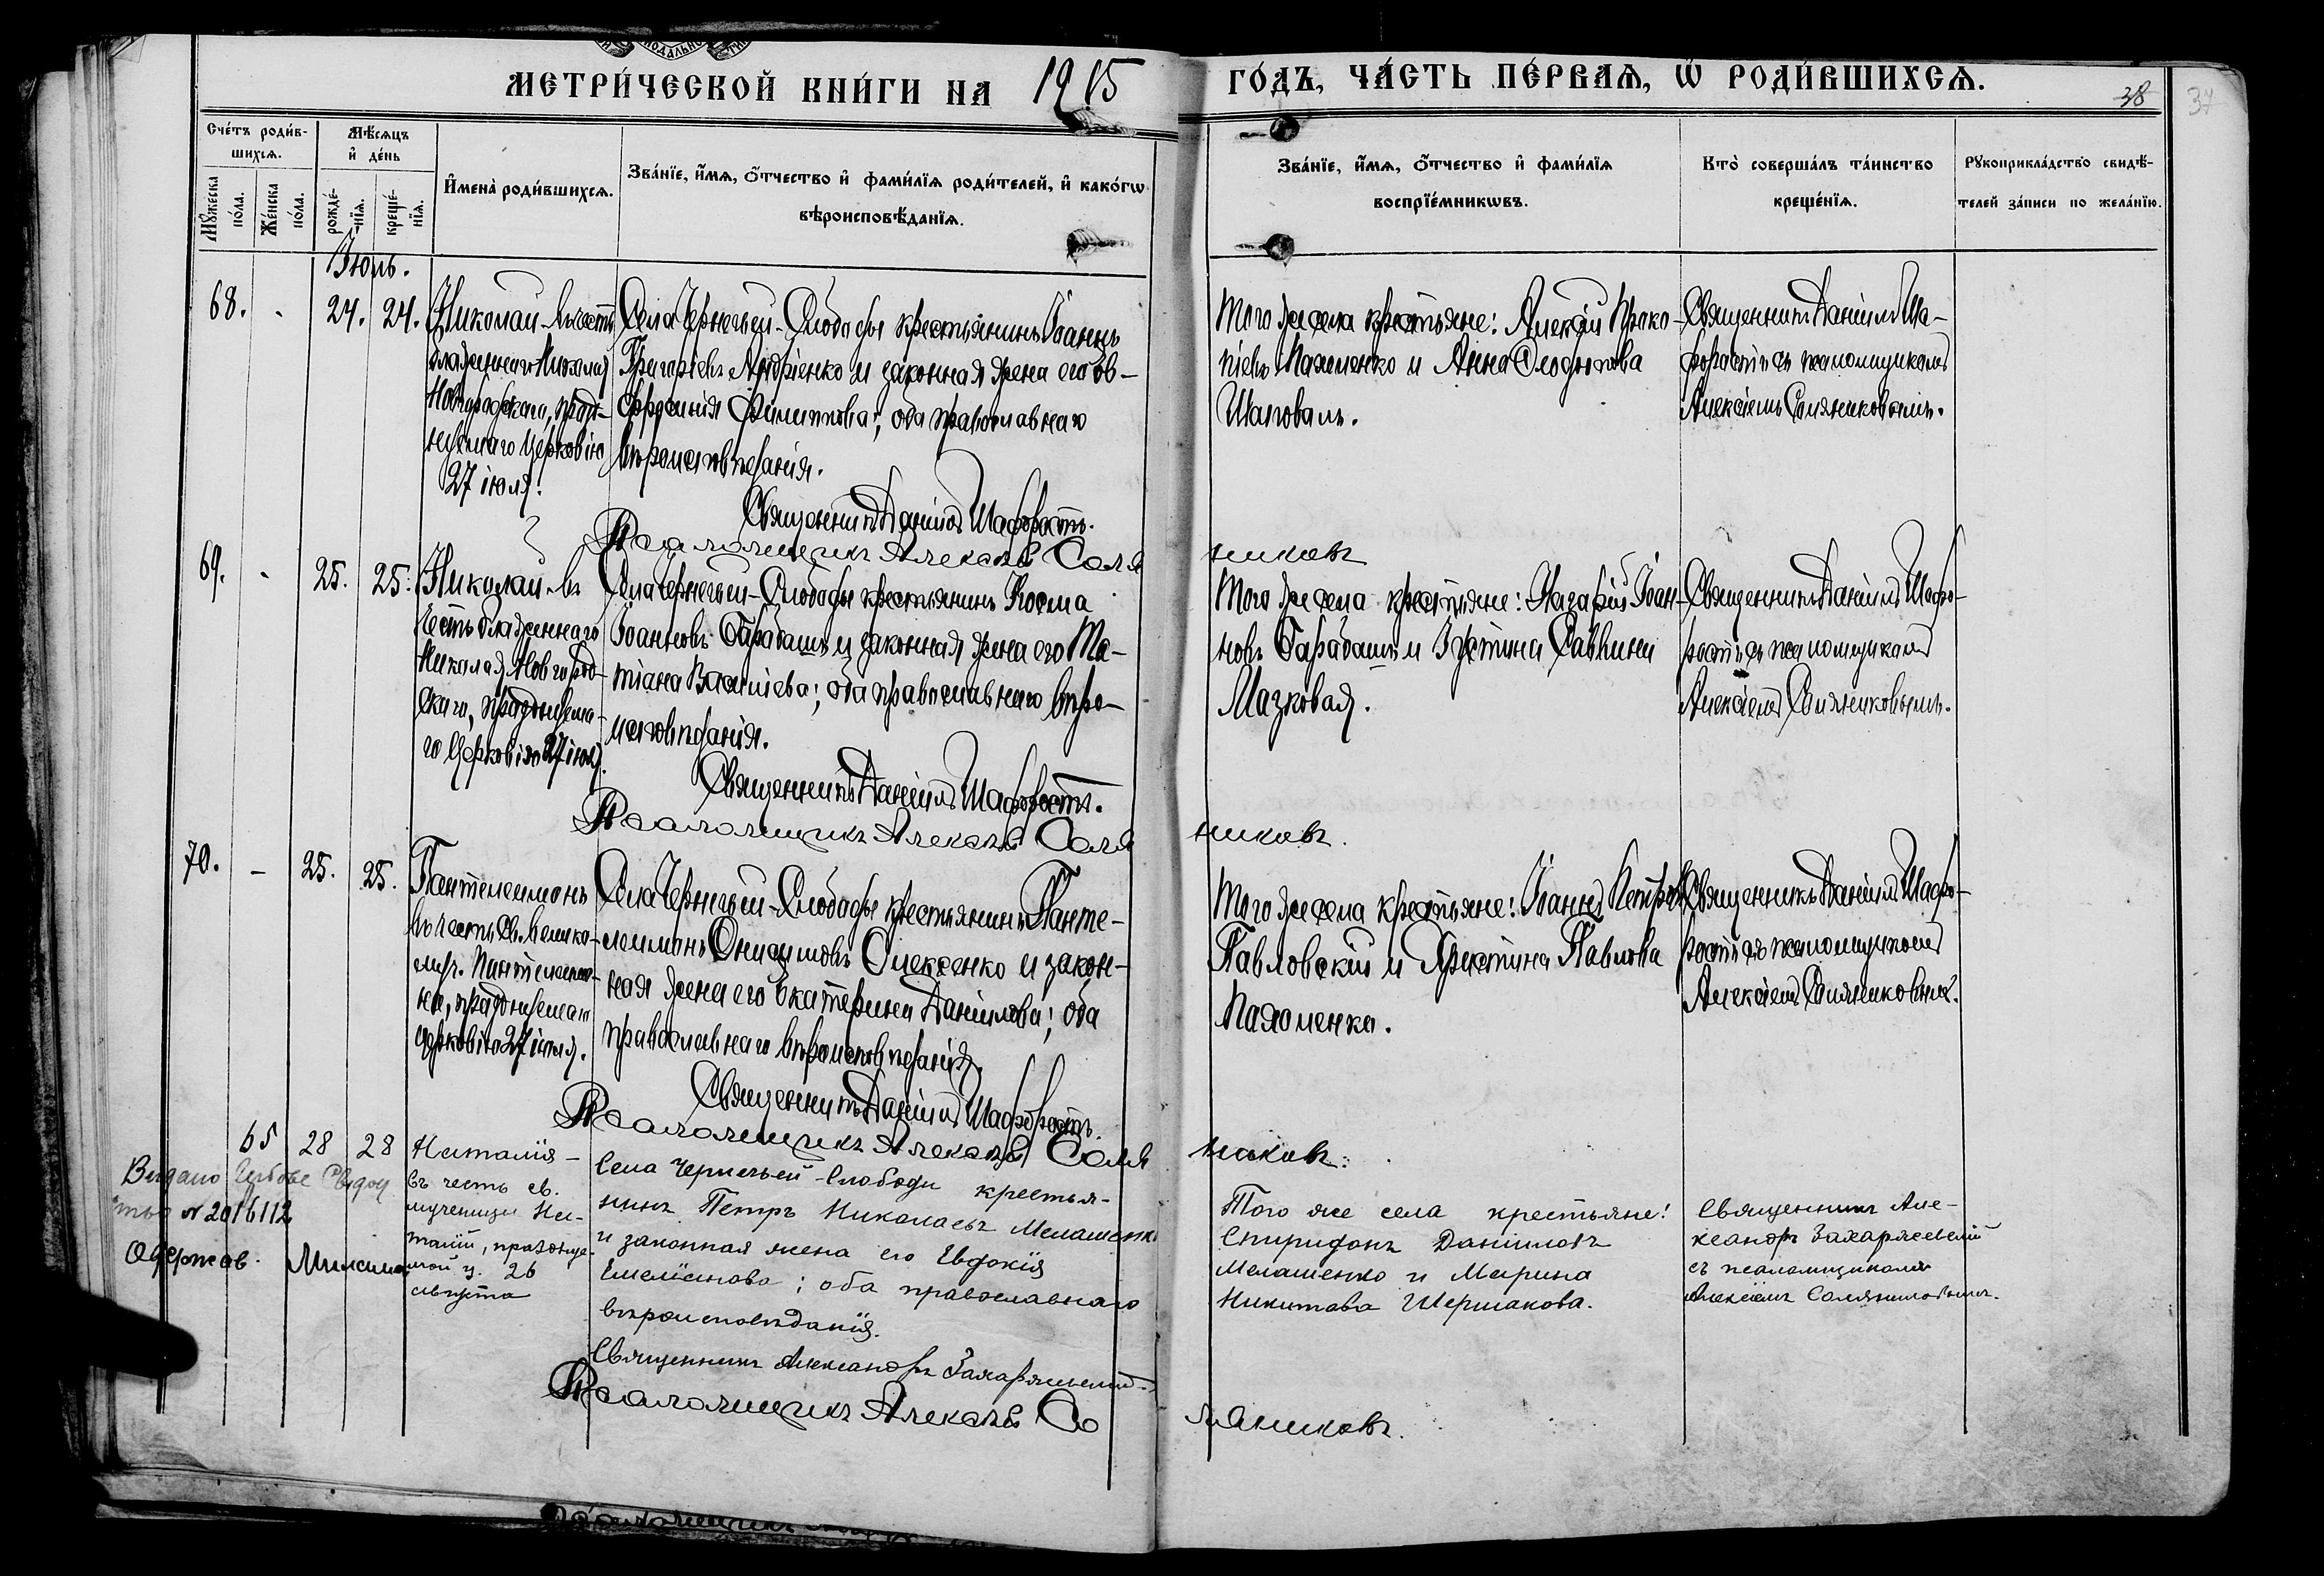 МЕТРИ́ЧЕСКОЙ КНИ́ГИ НА 1915 ГО́ДЪ, ЧА́СТЬ ПЕ́РВАѦ, Ѡ РОДИ́ВШИХСѦ.
38
37
Сче́тъ роди́в-
шихсѧ.
Мѣ́сѧцъ
и҆ де́нь
Мꙋ́жеска
по́ла.
Же́нска
по́ла.
рожде́-
нїѧ.
креще́-
нїѧ.
И҆мена̀ роди́вшихсѧ.
Зва́нїе, и҆́мѧ, ѻ҆́тчество и҆ фами́лїѧ роди́телей, и҆ како́гѡ
вѣроисповѣ́данїѧ.
Зва́нїе, и҆́мѧ, ѻ҆́тчество и҆ фами́лїѧ
воспрїе́мникѡвъ.
Кто̀ соверша́лъ та́инство
креще́нїѧ.
Рꙋкоприкла́дство свидѣ́-
телей за́писи по жела́нїю.
Іюль.
68. - 24. 24.
Николай - въ честь
блаженнаго Николая
Новгородскаго, празд-
нуемаго Церковію
27 іюля.
Села Чернечьей-Слободы крестьянинъ Іоаннъ
Григоріевъ Андріенко и законная жена его Ев-
фросинія Филиппова; оба православнаго
вѣроисповѣданія.
Священникъ Даніилъ Шафоростъ.
Псаломщикъ Алексѣй Соля
никовъ
Того же села крестьяне: Алексій Проко-
піевъ Пахоменко и Анна Феодотова
Шаповалъ.
Священникъ Даніилъ Ша-
форостъ съ псаломщикомъ
Алексіемъ Соляниковымъ.
69. - 25. 25.
Николай - въ
честь блаженнаго
Николая Новгород-
скаго, празднуема-
го Церковію 27 іюля.
Села Чернечьей-Слободы крестьянинъ Косма
Іоанновъ Барабашъ и законная жена его Та-
тіана Василіева; оба православнаго вѣро-
исповѣданія.
Священникъ Даніилъ Шафоростъ.
Псаломщикъ Алексѣй Соля
никовъ.
Того же села крестьяне: Назарій Іоан-
новъ Барабашъ и Іустина Саввина
Мазковая.
Священникъ Даніилъ Шафо-
ростъ съ псаломщикомъ
Алексіемъ Соляниковымъ.
70. - 25. 25.
Пантелеимонъ
въ честь Св. велико-
муч. Пантелеимо-
на, празднуемаго
Церковію 27 іюля.
Села Чернечьей-Слободы крестьянинъ Панте-
леимонъ Онисимовъ Олексенко и закон-
ная жена его Екатерина Даніилова; оба
православнаго вѣроисповѣданія.
Священникъ Даніилъ Шафоростъ.
Псаломщикъ Алексѣй Соля
никовъ.
Того же села крестьяне: Іоаннъ Петровъ
Павловскій и Христина Павлова
Пахоменко.
Священникъ Даніилъ Шафо-
ростъ съ псаломщикомъ
Алексіемъ Соляниковымъ.
65 28 28
Наталія -
въ честь св.
мученицы На-
таліи, празднуе-
мой ц. 26
августа
Села Чернечьей-Слободы крестья-
нинъ Петръ Николаевъ Мелашенко
и законная жена его Евдокія
Емеліанова; оба православнаго
вѣроисповѣданія.
Священникъ Александръ Захаржевскій
Псаломщикъ Алексѣй Со
ляниковъ.
Того же села крестьяне:
Спиридонъ Даніиловъ
Мелашенко и Марина
Никитова Шершакова.
Священникъ Але-
ксандръ Захаржевскій
съ псаломщикомъ
Алексіемъ Соляниковымъ.
Видано
№ 2016112
Одержав.